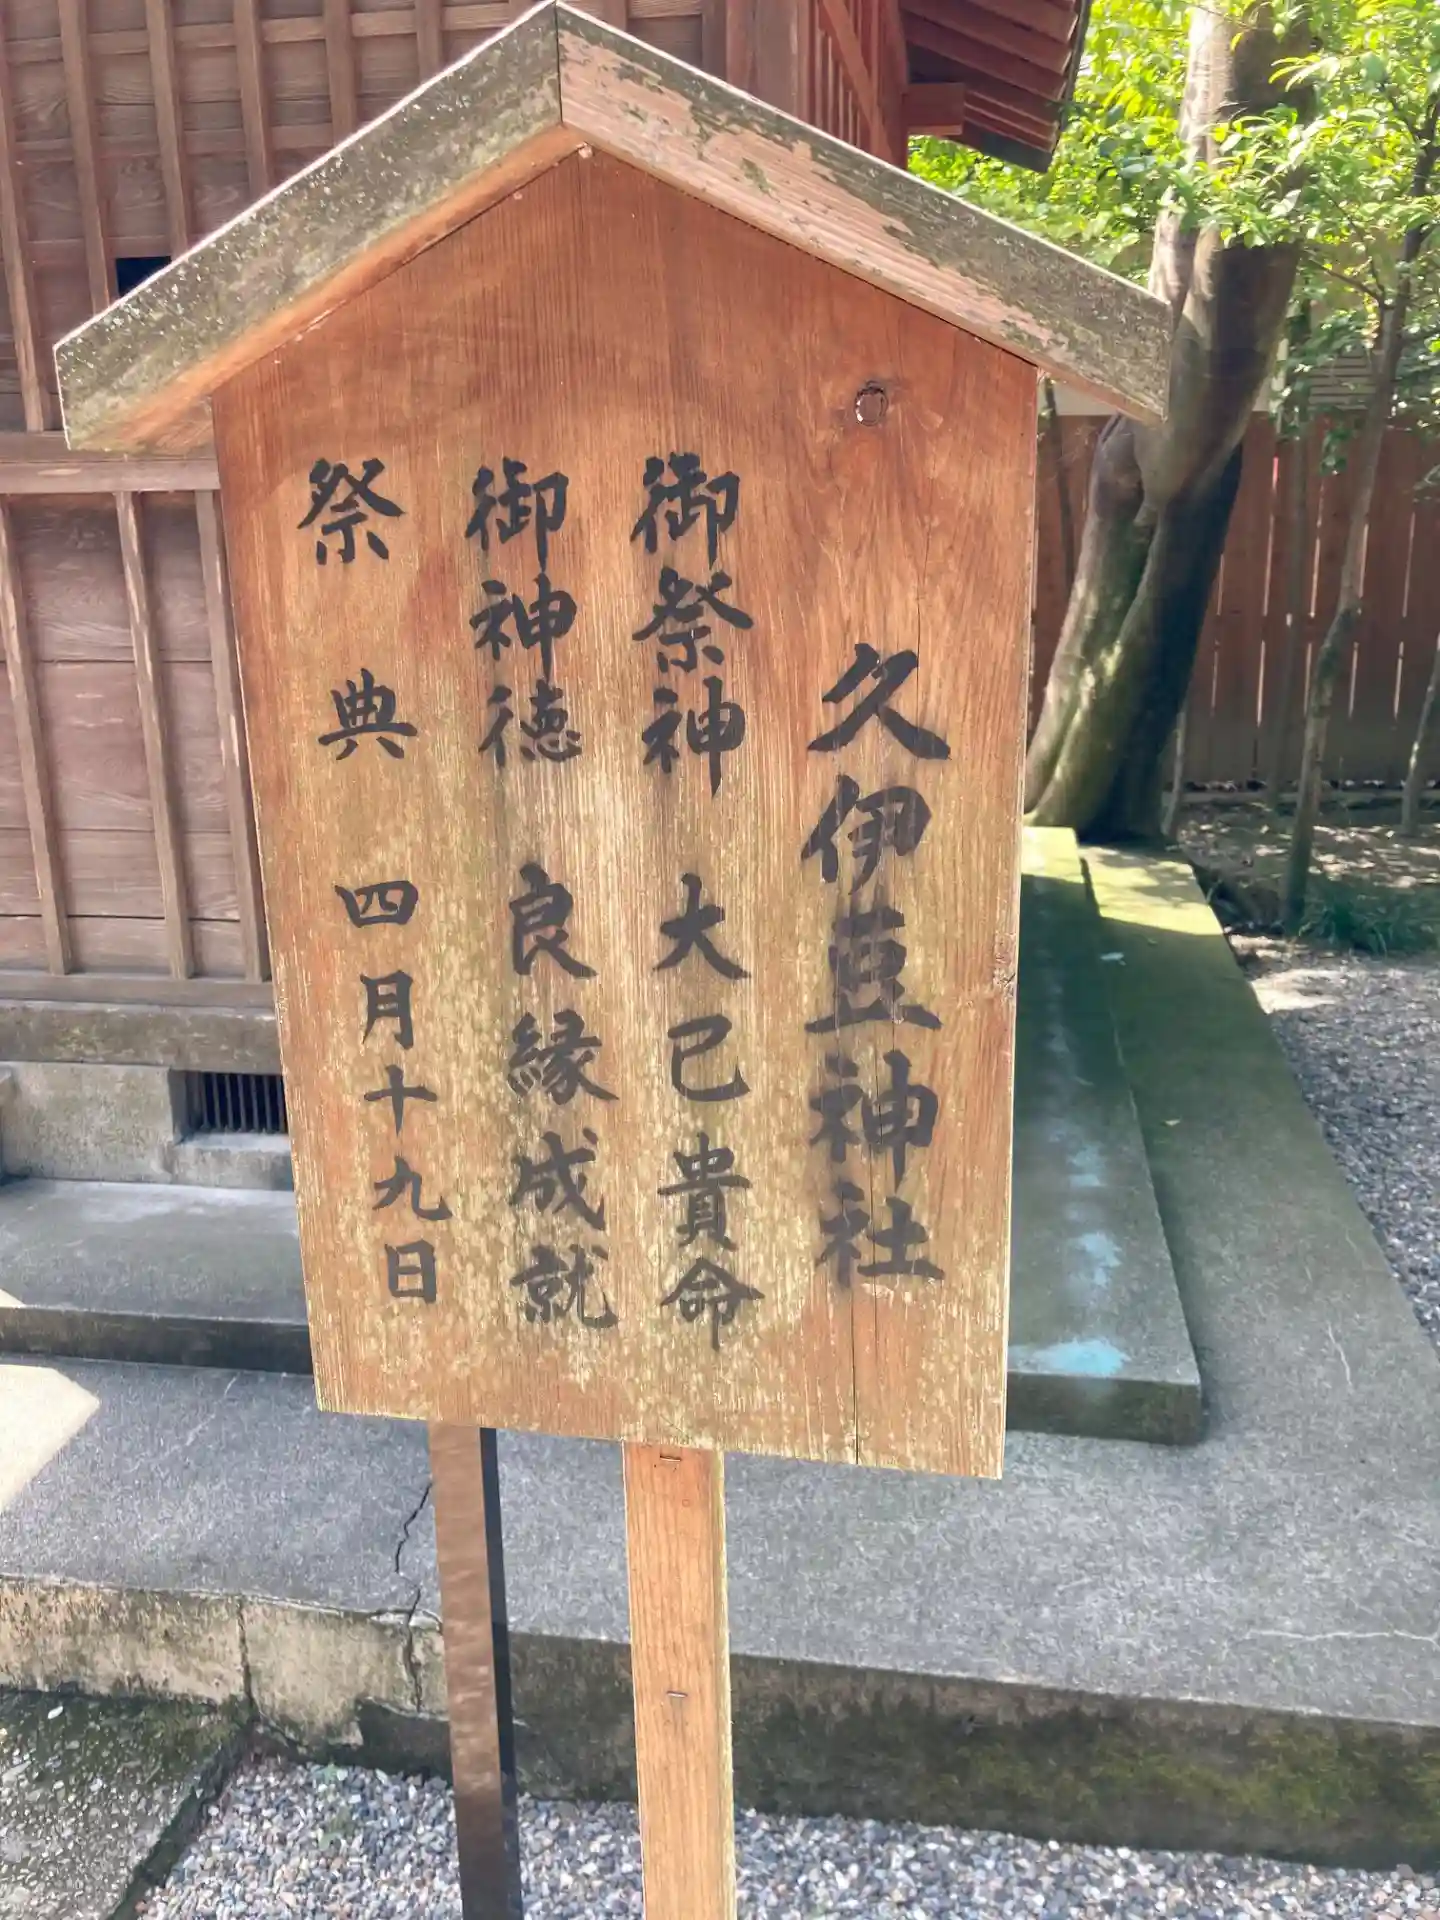 久伊豆神社
御祭神 大己貴命
御神徳 良縁成就
祭典 四月十九日